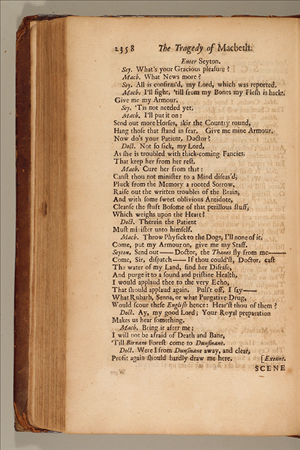 2358 The Tragedy of Macbeth.
Enter Seyton.
Sey. What's your Gracious pleasure?
Macb. What News more?
Sey. All is confirm'd, my Lord, which was reported.
Macb. I'll fight, 'till from my Bones my Flesh is hackt.
Give me my Armour.
Sey. 'Tis not needed yet.
Macb. I'll put it on:
Send out more Horses, skir the Country round,
Hang those that stand in fear. Give me mine Armour.
How do's your Patient, Doctor?
Doct. Not so sick, my Lord,
As she is troubled with thick-coming Fancies
That keep her from her rest.
Macb. Cure her from that:
Canst thou not minister to a Mind diseas'd,
Pluck from the Memory a rooted Sorrow,
Raise out the written troubles of the Brain,
And with some sweet oblivious Antidote,
Cleanse the stuft Bosome of that perillous stuff,
Which weighs upon the Heart?
Doct. Therein the Patient
Must minister unto himself.
Macb. Throw Physick to the Dogs, I'll none of it.
Come, put my Armour on, give me my Staff.
Seyton, Send out—— Doctor, the Thanes fly from me——
Come, Sir, dispatch—— If thou could'st, Doctor, cast
The water of my Land, find her Disease,
And purge it to a sound and pristine Health,
I would applaud thee to the very Echo,
That should applaud again. Pull't off, I say——
What Rubarb, Senna, or what Purgative Drug,
Would scour these English hence: Hear'st thou of them?
Doct. Ay, my good Lord; Your Royal preparation
Makes us hear something.
Macb. Bring it after me:
I will not be afraid of Death and Bane,
'Till Birnam Forest come to Dunsinane.
Doct. Were I from Dunsinane away, and clear,
Profit again should hardly draw me here. [Exeunt.
SCENE